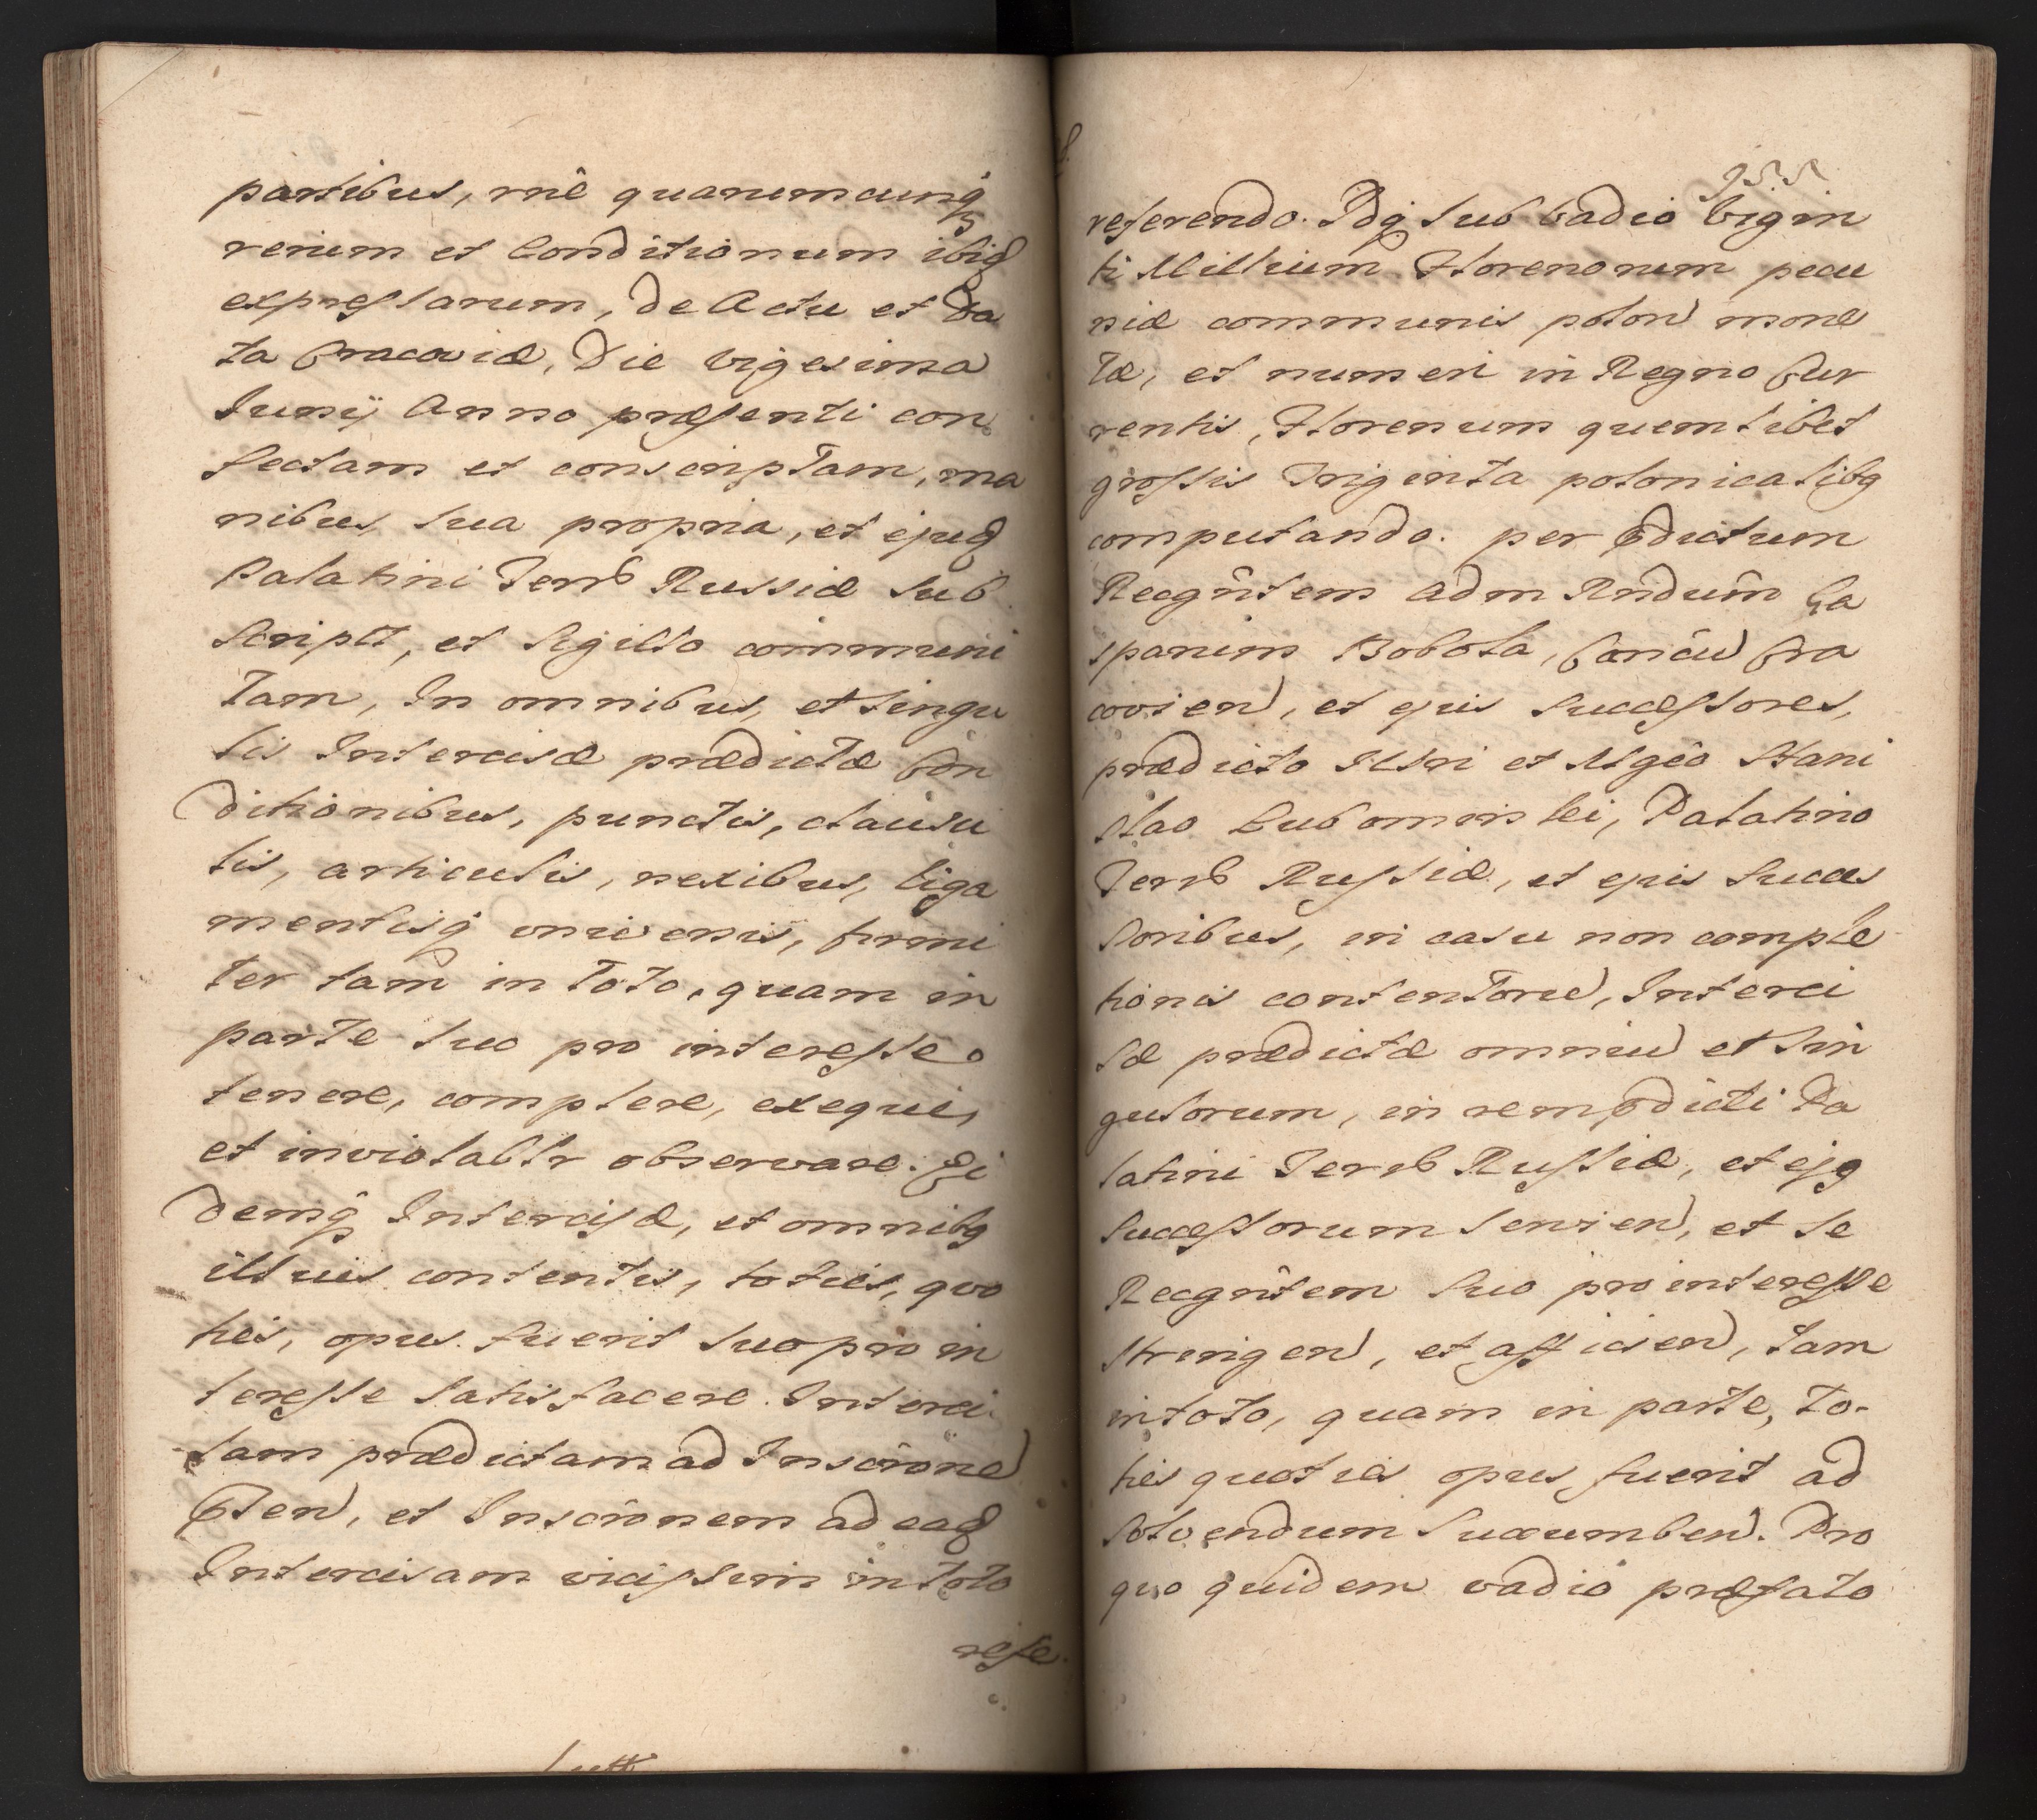 partibus, rnê quarumcunq
rerum et Conditionum ibid
expressarum, de Actu et Da
ta Cracoviæ, Die vigesima
Junÿ Anno præsenti con
fectam et conscriptam, ma
nibus, sua propria, et ejusd
Palatini Terrˢ Russiæ sub
script, et sigillo communi
tam, In omnibus, et singu
lis Intercisæ prædictæ Con
ditionibus, punctis, clausu
lis, articulis, nexibus, liga
mentisq universis, firmi
ter tam in toto, quam in
parte suo pro interesse
tenere, complere, exequi,
et inviolabtr observare. Ei
demq Intercisæ, et omnibq
illius contentis, toties, quo
ties, opus fuerit suo pro in
teresse satisfacere. Interci
sam prædictam ad Inscrône
pñten, et Inscrônem ad eand
Intercisam vicissim in toto
refe.
955
referendo. Idq sub vadio vigin
ti Millium Florenorum pecu
niæ communis polon mone
tæ, et numeri in Regno Cur
rentis, Florenum quemlibet
grossis Triginta polonicalibq
computando. per pdictum
Recgñtem Adm Rndum Ca
sparum Bobola, Canôu Cra
covien, et ejus successores,
prædicto Illsri et Mgco Stani
slao Lubomirslei, Palatino
Terrˢ Russiæ, et ejus succes
soribus, in casu non comple
tionis contentoru, Interci
sæ prædictæ omniu et sin
gulorum, in rem pdicti Pa
latini Terrˢ Russiæ, et ejq
successorum servien, et se
Recgñtem suo pro interesse
stringen, et afficien, tam
in toto, quam in parte, to-
ties quoties opus fuerit ad
solvendum succumben. Pro
quo quidem vadio præfato